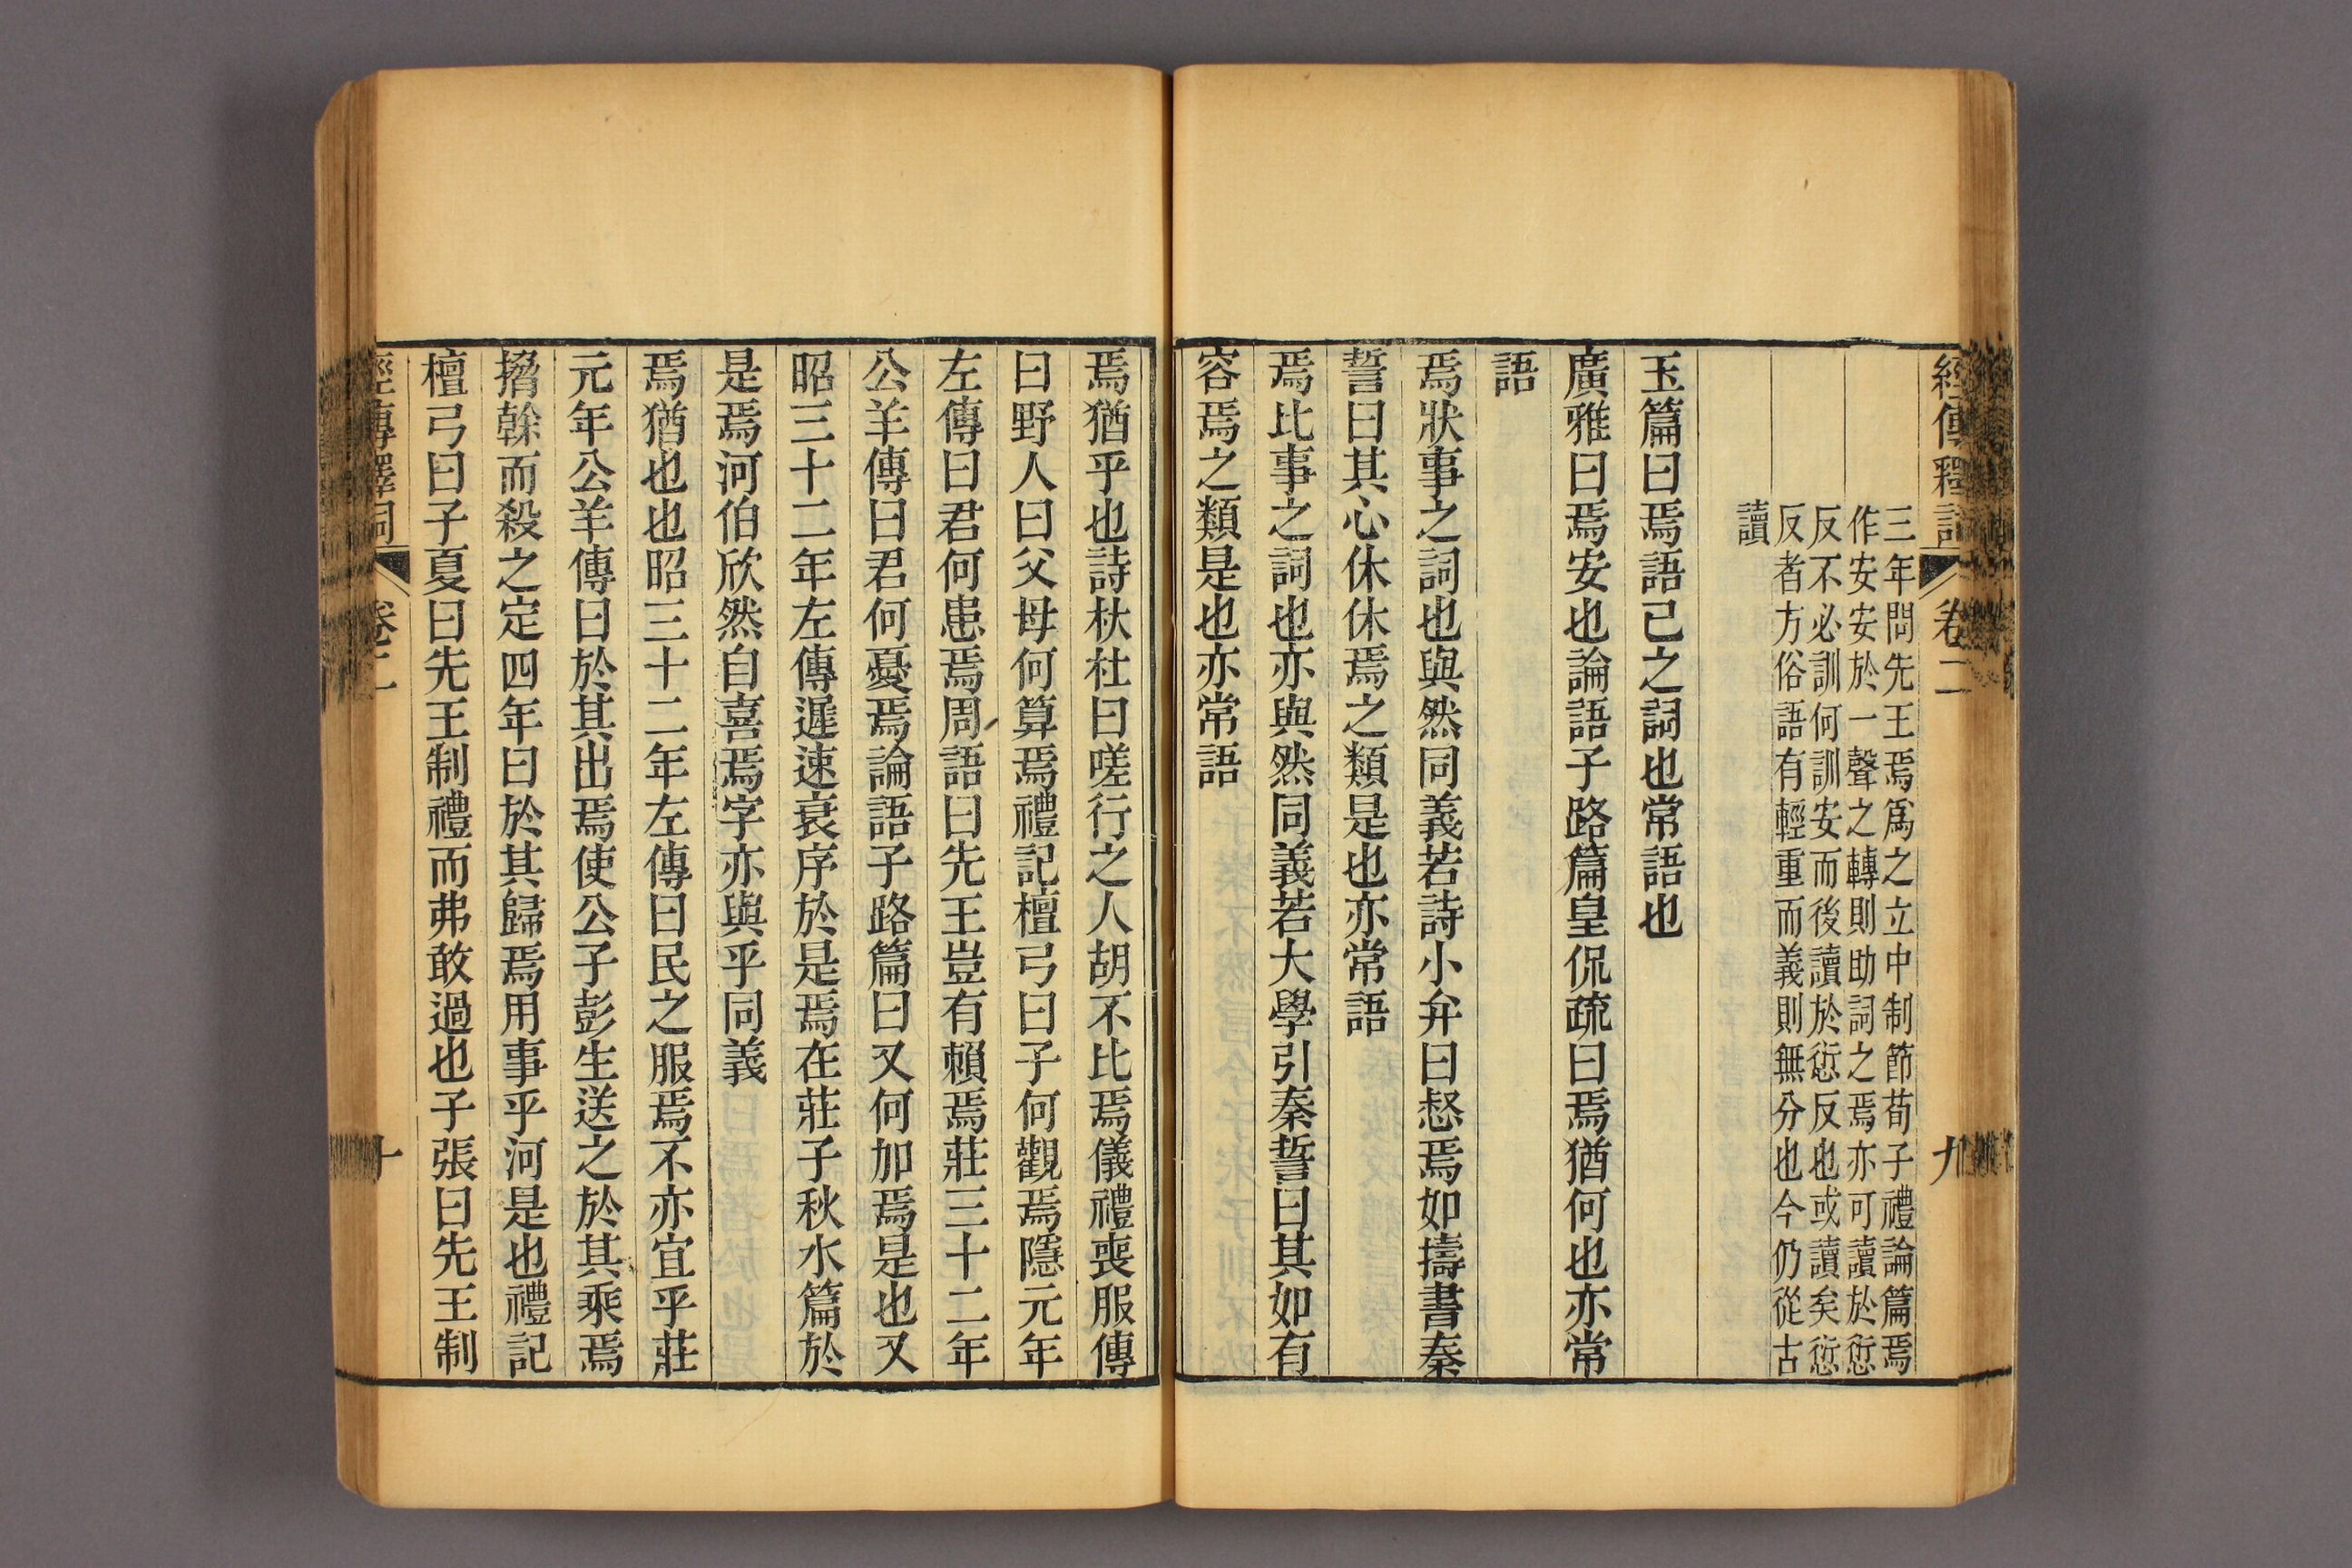 經傳釋詞
卷二
九
三年問先王焉爲之立中制節荀子禮論篇焉
作安安於一聲之轉則助詞之焉亦可讀於愆
反不必訓何訓安而後讀於愆反也或讀矣愆
反者方俗語有輕重而義則無分也今仍從古
讀
玉篇曰焉語已之詞也常語也
廣雅曰焉安也論語子路篇皇侃疏曰焉猶何也亦常
語
焉狀事之詞也與然同義若詩小弁曰惄焉如擣書秦
誓曰其心休休焉之類是也亦常語
焉比事之詞也亦與然同義若大學引秦誓曰其如有
容焉之類是也亦常語
焉猶乎也詩杕杜曰嗟行之人胡不比焉儀禮喪服傳
曰野人曰父母何算焉禮記檀弓曰子何觀焉隱元年
左傳曰君何患焉周語曰先王豈有賴焉莊三十二年
公羊傳曰君何憂焉論語子路篇曰又何加焉是也又
昭三十二年左傳遲速衰序於是焉在莊子秋水篇於
是焉河伯欣然自喜焉焉字亦與乎同義
焉猶也也昭三十二年左傳曰民之服焉不亦宜乎莊
元年公羊傳曰於其出焉使公子彭生送之於其乘焉
搚幹而殺之定四年曰於其歸焉用事乎河是也禮記
檀弓曰子夏曰先王制禮而弗敢過也子張曰先王制
經傳釋詞
卷二
十